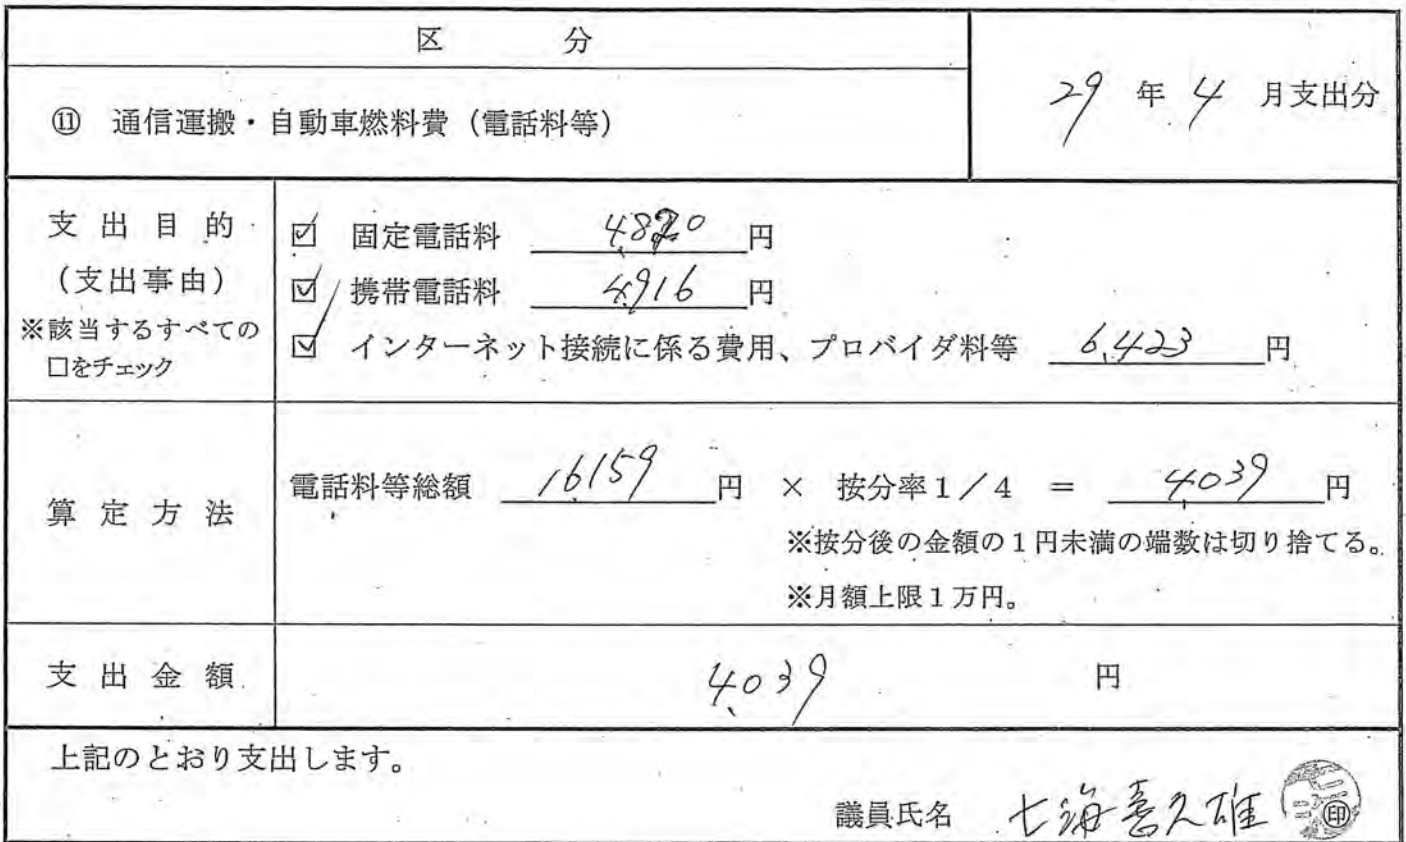 区 分
29 年 4 月支出分
⑪ 通信運搬・自動車燃料費（電話料等）
支 出 目 的
（支出事由）
※該当するすべての
□をチェック
☑ 固定電話料 4,820 円
☑ 携帯電話料 4,916 円
☑ インターネット接続に係る費用、プロバイダ料等 6,423 円
算 定 方 法
電話料等総額 16,159 円 × 按分率１／４ ＝ 4,039 円
※按分後の金額の１円未満の端数は切り捨てる。
※月額上限１万円。
支 出 金 額
4,039 円
上記のとおり支出します。
議員氏名 七海喜久雄 ㊞